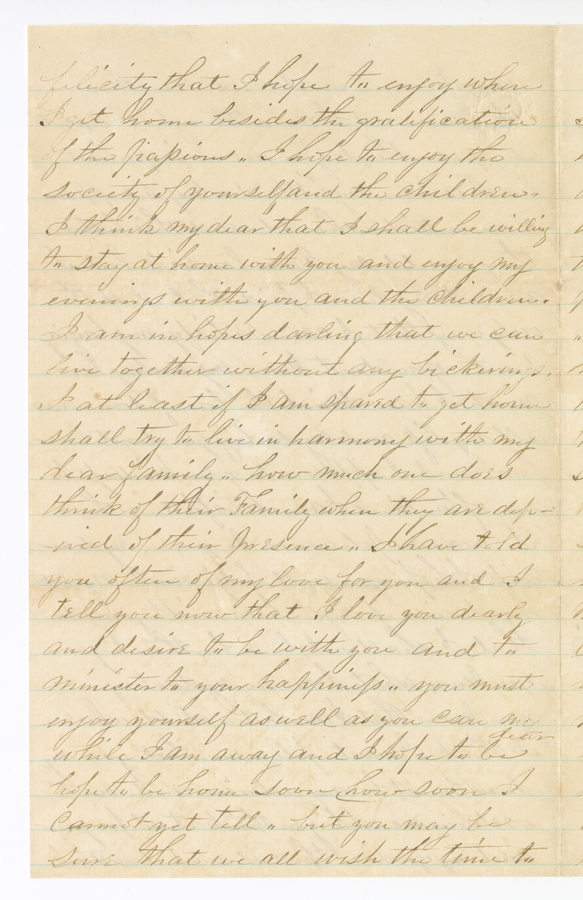 felicity that I hope to enjoy when
I get home besides the gratification
of the papious „ I hope to enjoy the
society of yourself and the children.
I think my dear that I shall be willing
to stay at home with you and enjoy my
evenings with you and the children.
I am in hopes darling that we can
live together without any bickerings.
I at least if I am spared to get home
shall try to live in harmony with my
dear family „ how much one does
think of their Family when they are dep-
-ived of their presence „ I have told
you often of my love for you and I
tell you now that I love you dearly
and desire to be with you and to
minister to your happiness „ you must
enjoy yourself as well as you can my
dear
while I am away and I hope to be
hope to be home soon how soon I
cannot yet tell „ but you may be
sure that we all wish the time to